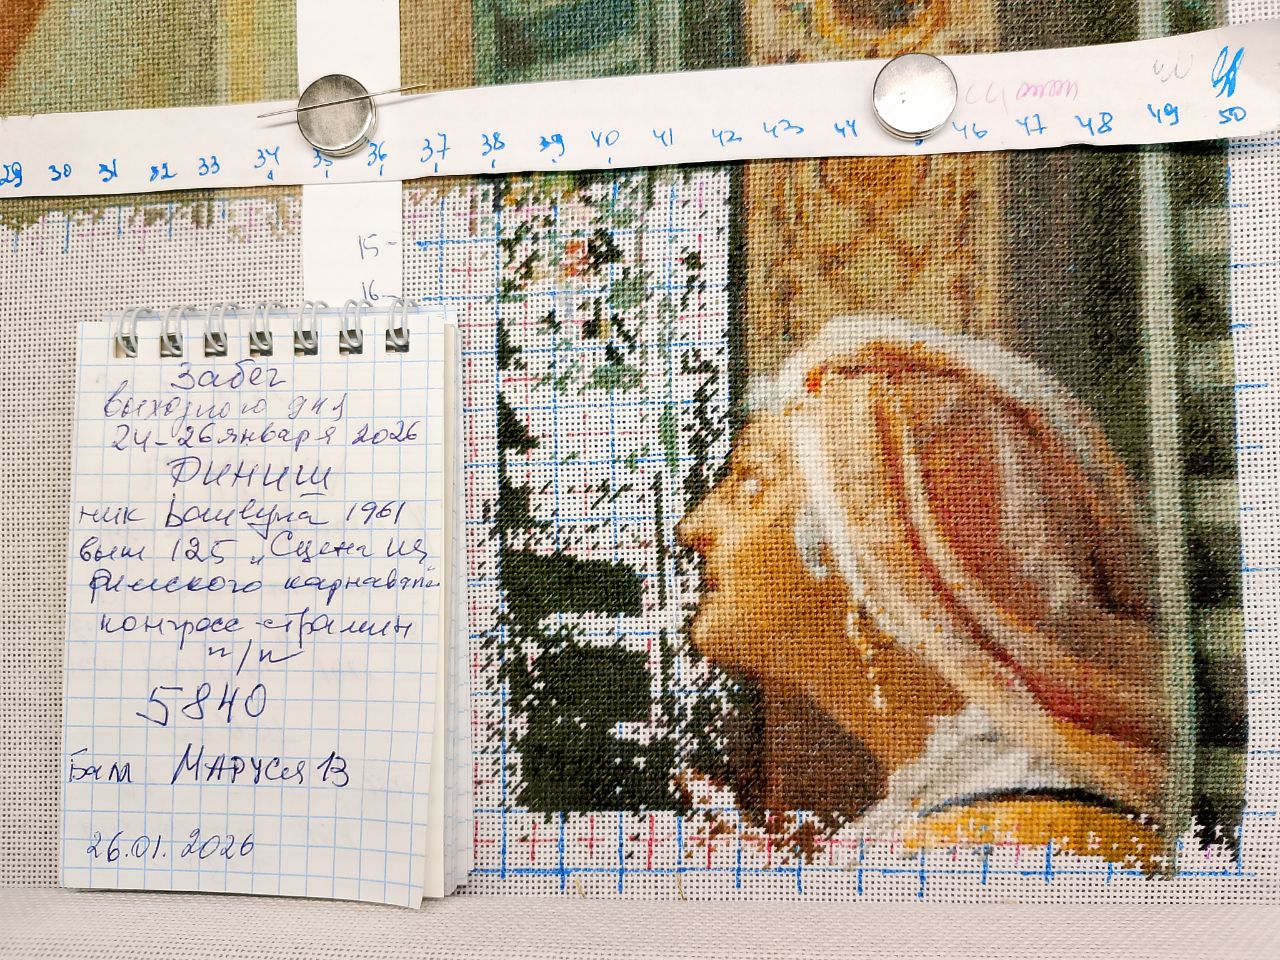 29 30 31 32 33 34 35 36 37 38 39 40 41 42 43 44 46 47 48 49 50
15
16
Забег
выходного дня
24-26 января 2026
ФИНИШ
ник 1961
выш 125 „Сцена из
римского карнавала
конгресс-страмин
п/п
5840
Бам МАРУСЯ 13
26.01.2026